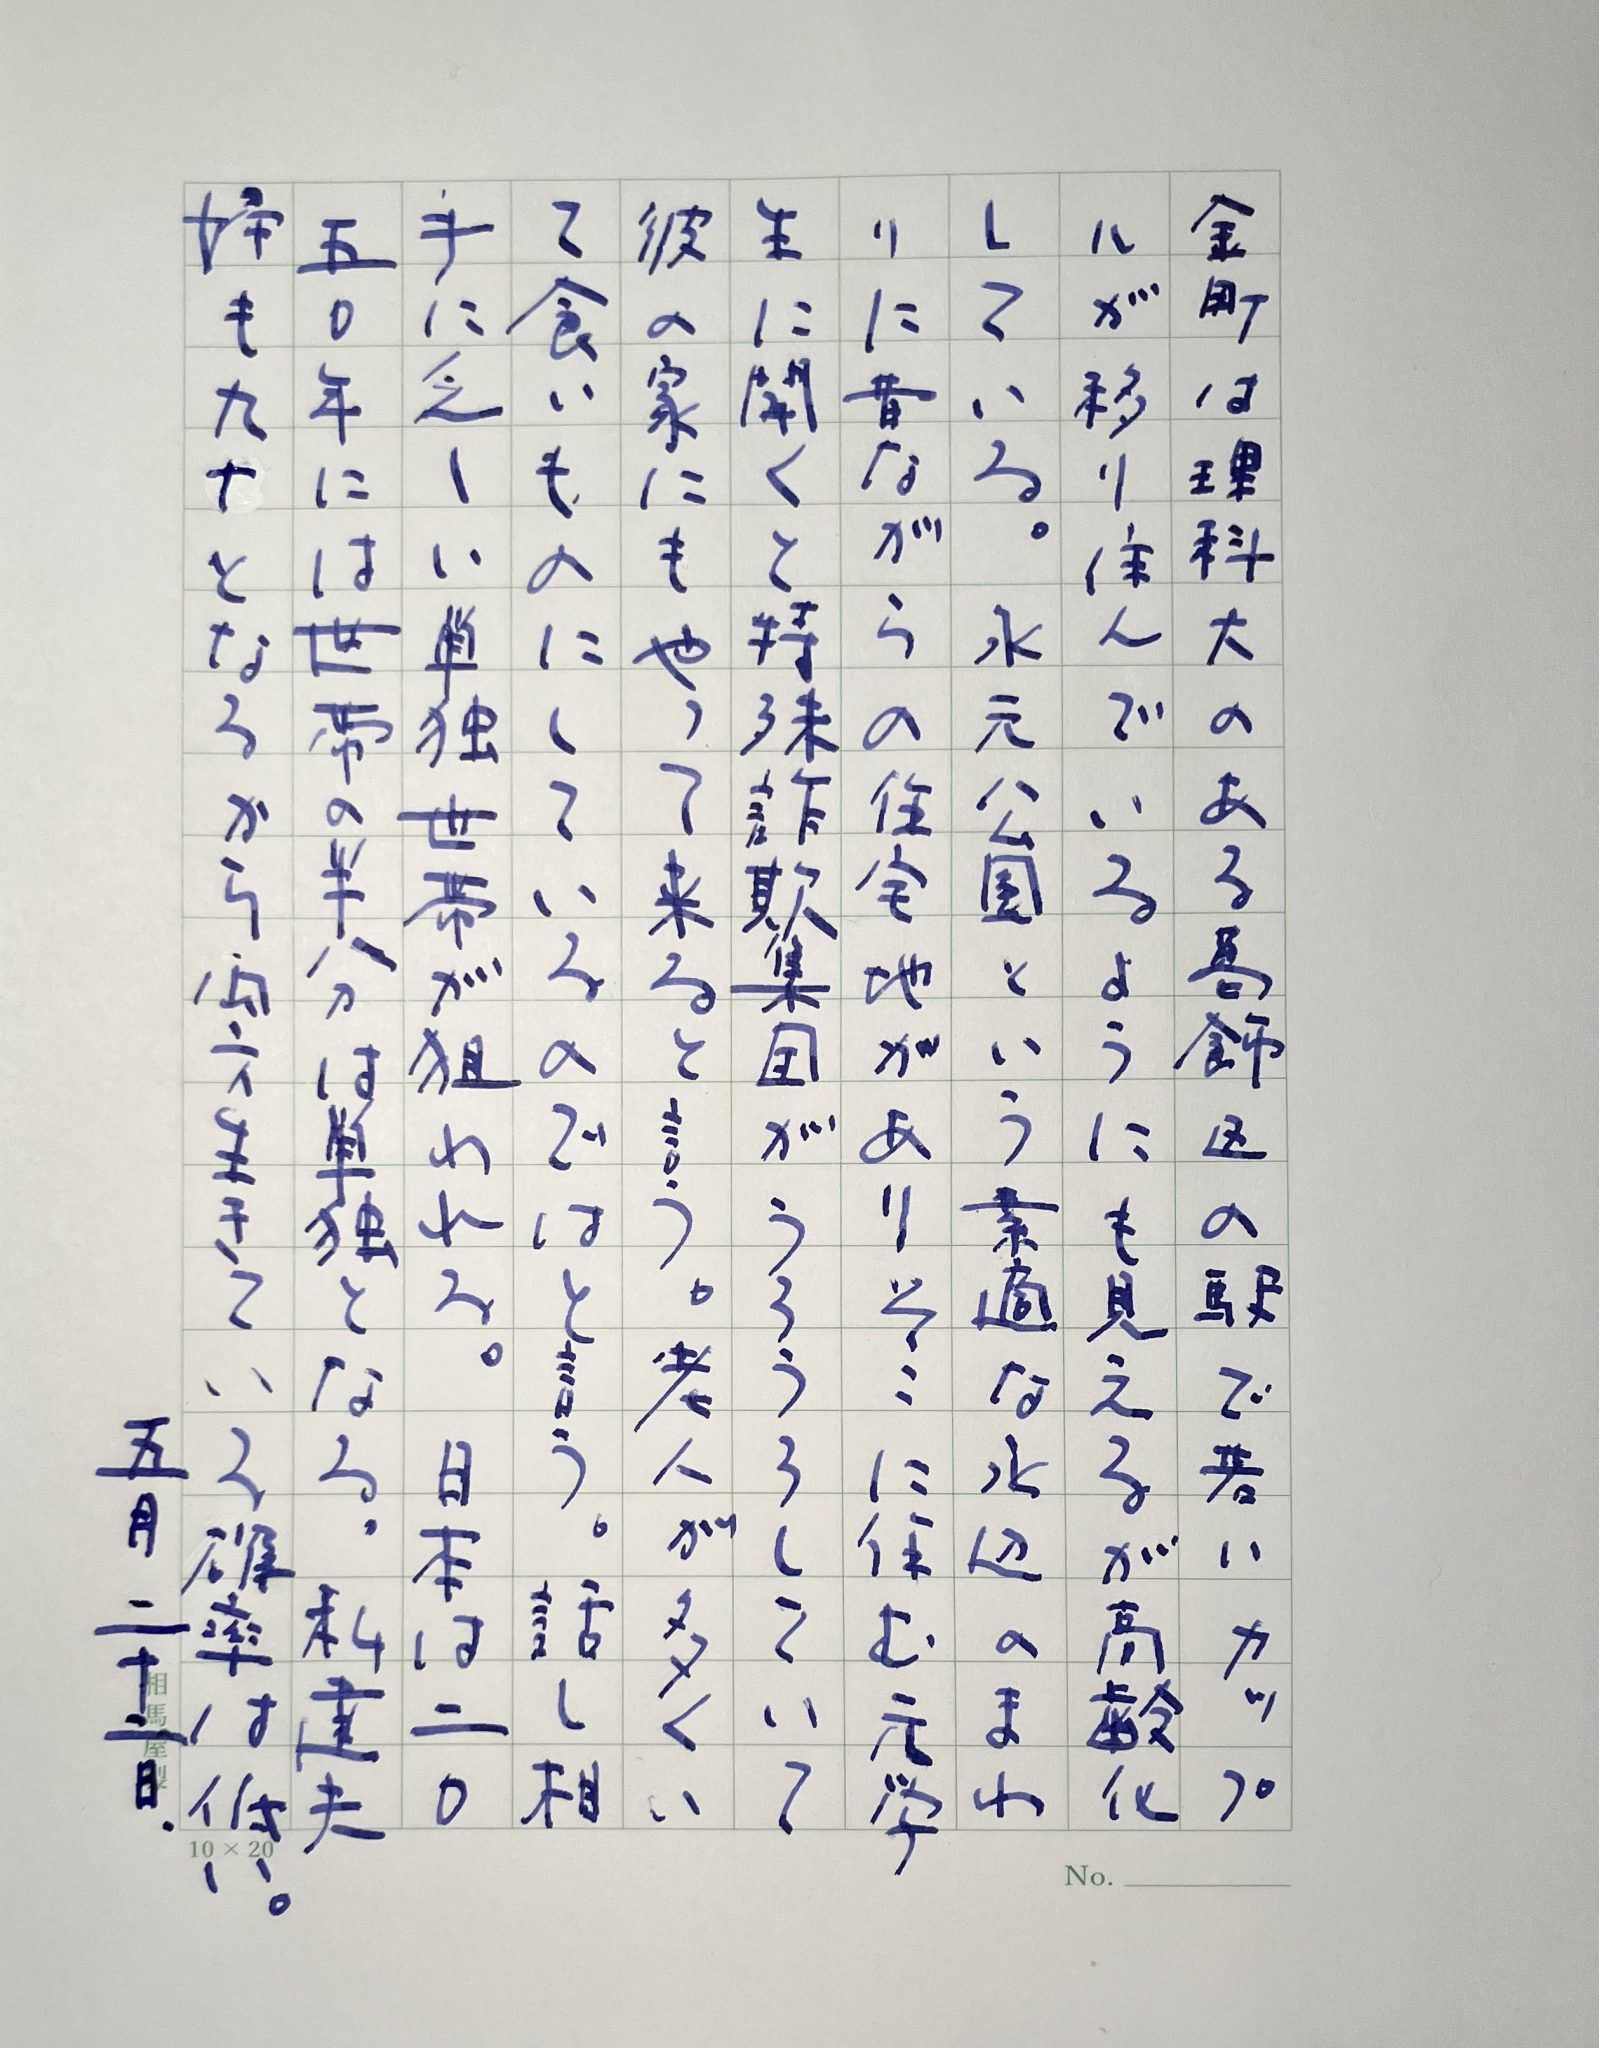 金町は理科大のある葛飾区の駅で若いカップ
ルが移り住んでいるようにも見えるが高齢化
している。水元公園という素適な水辺のまわ
りに昔ながらの住宅地がありそこに住む元学
生に聞くと特殊詐欺集団がうろうろしていて
彼の家にもやって来ると言う。老人が多くい
て食いものにしているのではと言う。話し相
手に乏しい単独世帯が狙われる。日本は二〇
五〇年には世帯の半分は単独となる。私達夫
婦も九十となるから両方生きている確率は低い。
五月二十二日.
相馬屋製
10×20
No.